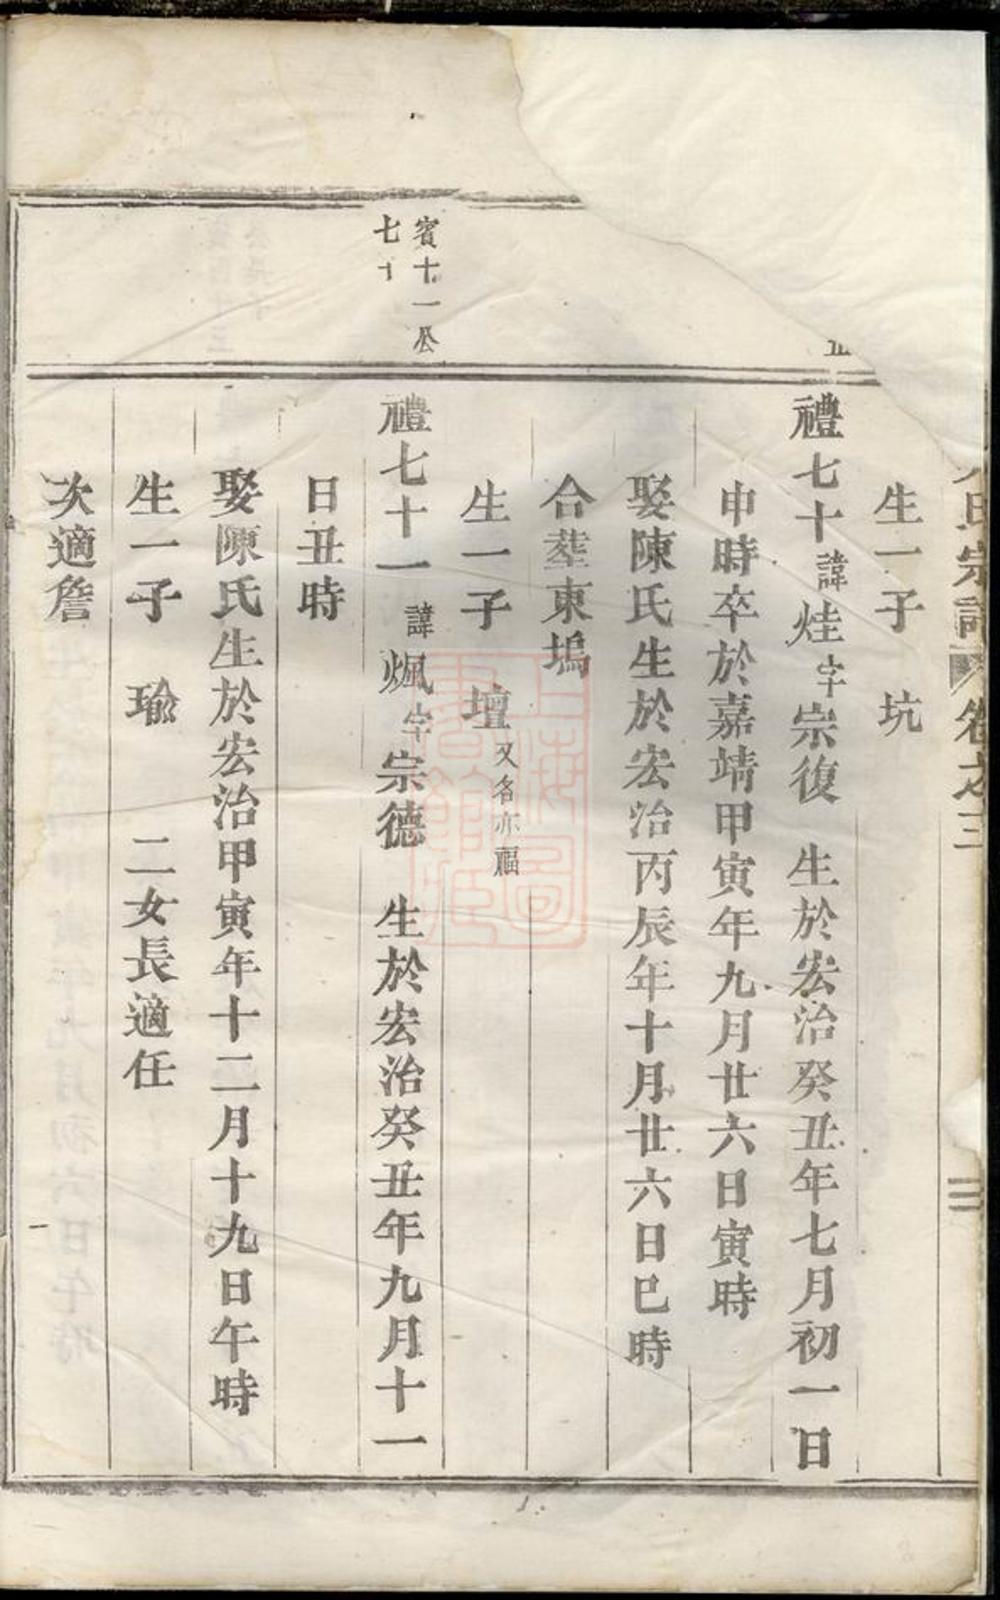 氏宗譜 卷之三
生一子 坑
禮七十諱烓字宗復 生於宏治癸丑年七月初一日
申時卒於嘉靖甲寅年九月廿六日寅時
娶陳氏生於宏治丙辰年十月廿六日巳時
合塟東塢
生一子 壇又名亦福
賓十一公
七十
禮七十一諱煈字宗德 生於宏治癸丑年九月十一
日丑時
娶陳氏生於宏治甲寅年十二月十九日午時
生一子 瑜 二女長適任
次適詹